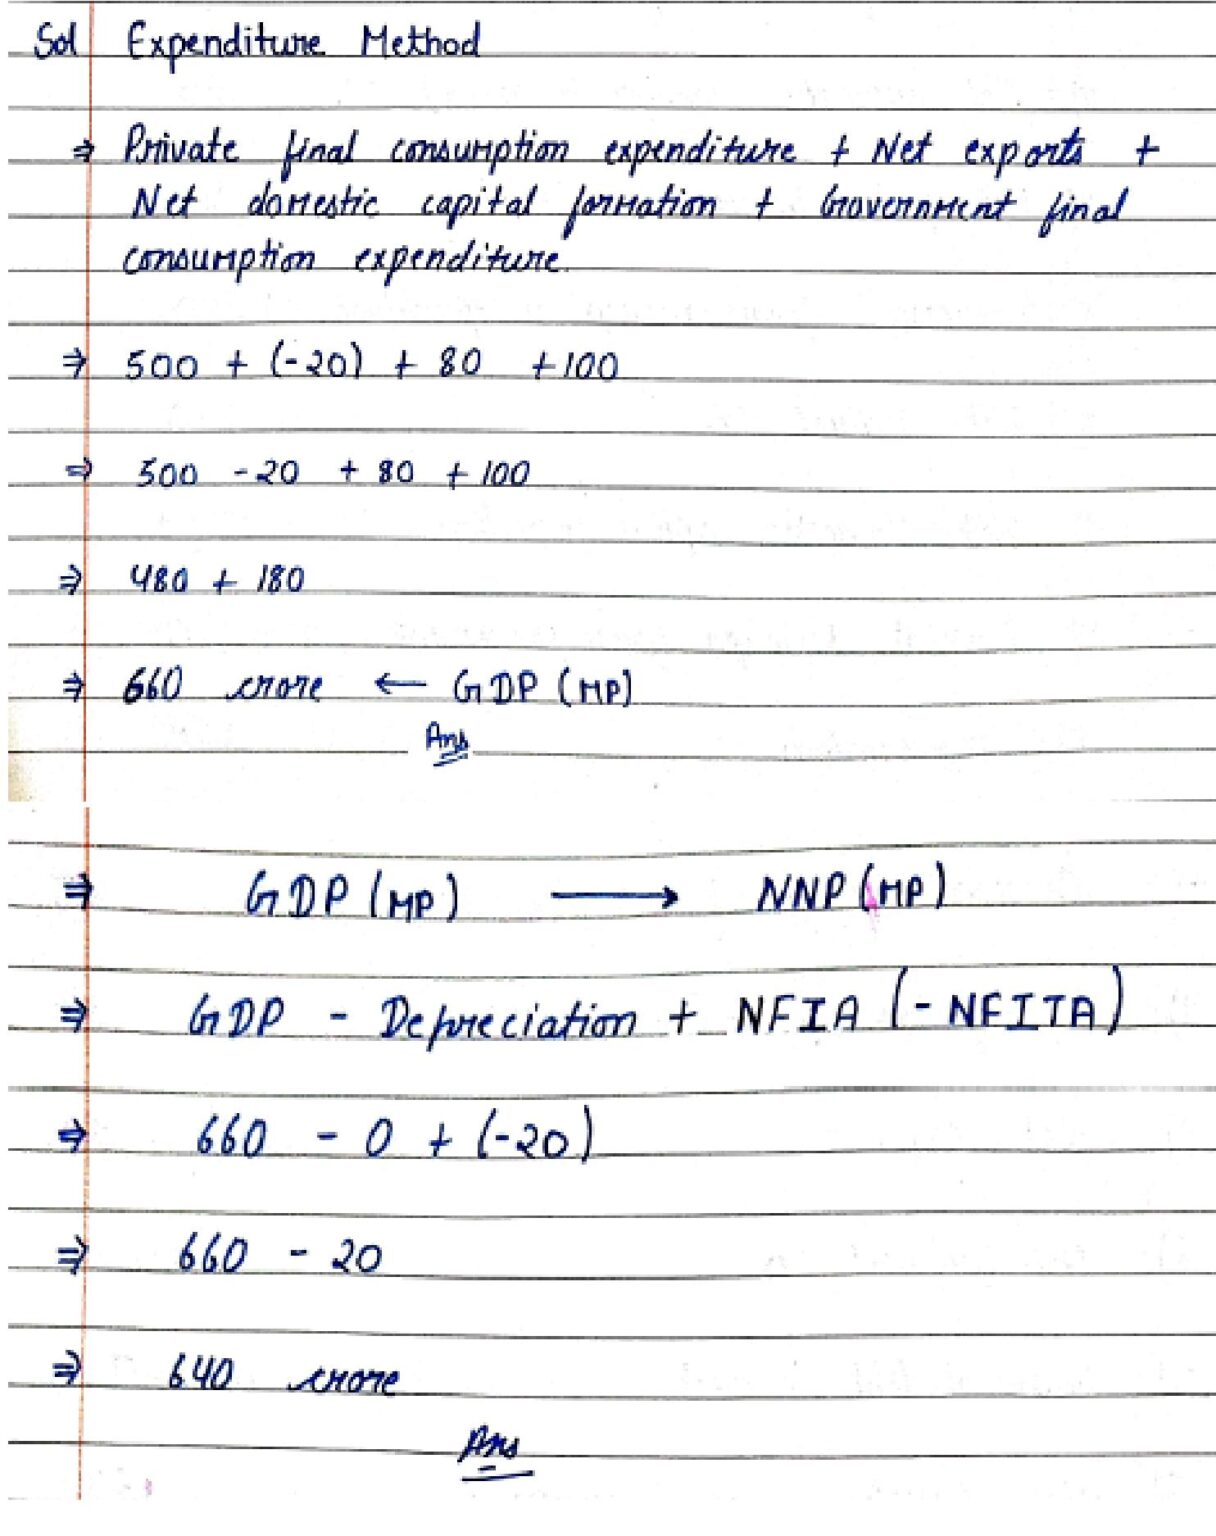 Sol Expenditure Method
⇒ Private final consumption expenditure + Net exports +
Net domestic capital formation + Government final
consumption expenditure.
⇒ 500 + (-20) + 80 + 100
⇒ 500 - 20 + 80 + 100
⇒ 480 + 180
⇒ 660 crore ← GDP (MP)
Ans
⇒ GDP (MP) → NNP (MP)
⇒ GDP - Depreciation + NFIA (- NFITA)
⇒ 660 - 0 + (-20)
⇒ 660 - 20
⇒ 640 crore
Ans